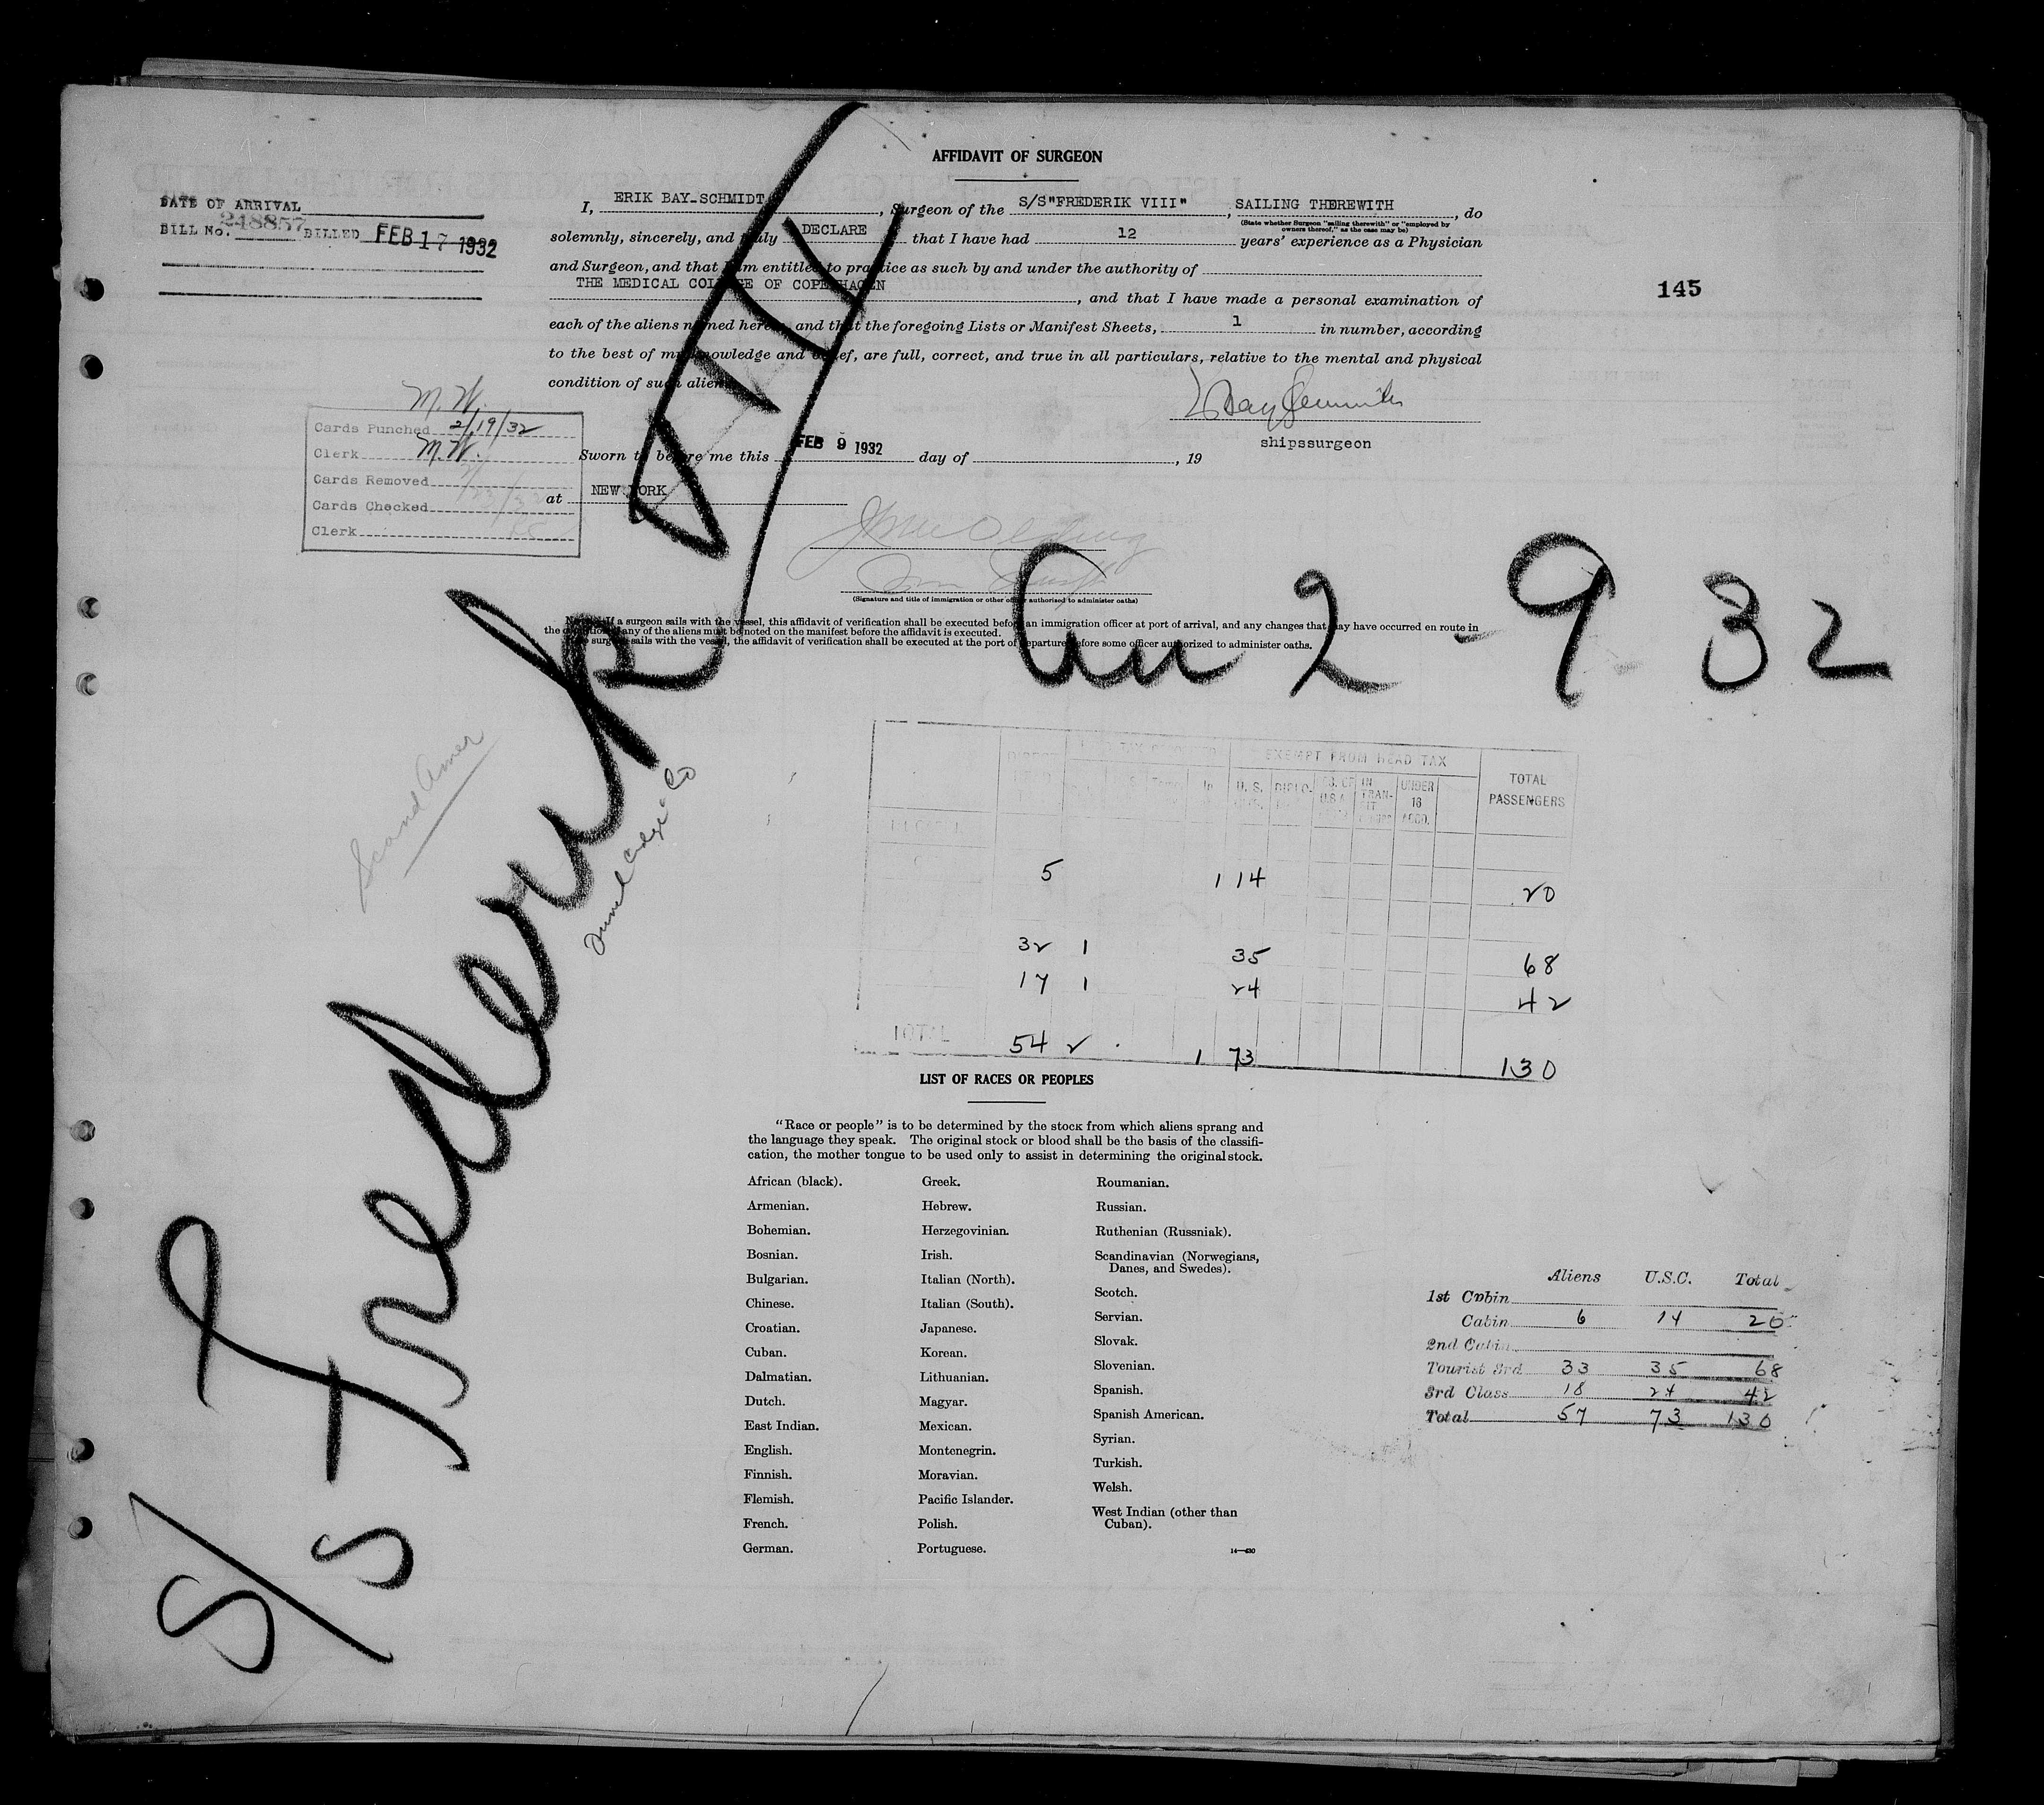 AFFIDAVIT OF SURGEON
DATE OF ARRIVAL
BILL No. 248857 BILLED FEB 17 1932
I, ERIK BAY-SCHMIDT, Surgeon of the S/S"FREDERIK VIII", SAILING THEREWITH, do
(State whether Surgeon "sailing therewith" or "employed by owners thereof," as the case may be)
solemnly, sincerely, and truly DECLARE that I have had 12 years' experience as a Physician
and Surgeon, and that I am entitled to practice as such by and under the authority of
THE MEDICAL COLLEGE OF COPENHAGEN, and that I have made a personal examination of
each of the aliens named herein, and that the foregoing Lists or Manifest Sheets, 1 in number, according
to the best of my knowledge and belief, are full, correct, and true in all particulars, relative to the mental and physical
condition of such aliens.
145
shipssurgeon
M.W.
Cards Punched 2/19/32
Clerk M.W.
Cards Removed
Cards Checked
Clerk
Sworn to before me this FEB 9 1932 day of , 19
at NEW YORK
(Signature and title of immigration or other officer authorised to administer oaths)
If a surgeon sails with the vessel, this affidavit of verification shall be executed before an immigration officer at port of arrival, and any changes that may have occurred en route in
the condition of any of the aliens must be noted on the manifest before the affidavit is executed.
surgeon sails with the vessel, the affidavit of verification shall be executed at the port of departure before some officer authorized to administer oaths.
S/S Frederik VIII
2-9-32
Scand Amer
EXEMPT FROM HEAD TAX
U.S. DIPLO- IN TRAN- UNDER 16 ACCO. TOTAL PASSENGERS
5 1 14 20
32 1 35 68
17 1 24 42
TOTAL 54 2 1 73 130
LIST OF RACES OR PEOPLES
"Race or people" is to be determined by the stock from which aliens sprang and
the language they speak. The original stock or blood shall be the basis of the classifi-
cation, the mother tongue to be used only to assist in determining the original stock.
African (black).
Armenian.
Bohemian.
Bosnian.
Bulgarian.
Chinese.
Croatian.
Cuban.
Dalmatian.
Dutch.
East Indian.
English.
Finnish.
Flemish.
French.
German.
Greek.
Hebrew.
Herzegovinian.
Irish.
Italian (North).
Italian (South).
Japanese.
Korean.
Lithuanian.
Magyar.
Mexican.
Montenegrin.
Moravian.
Pacific Islander.
Polish.
Portuguese.
Roumanian.
Russian.
Ruthenian (Russniak).
Scandinavian (Norwegians,
Danes, and Swedes).
Scotch.
Servian.
Slovak.
Slovenian.
Spanish.
Spanish American.
Syrian.
Turkish.
Welsh.
West Indian (other than
Cuban).
Aliens U.S.C. Total
1st Cabin
Cabin 6 14 20
2nd Cabin
Tourist 3rd 33 35 68
3rd Class 18 24 42
Total 57 73 130